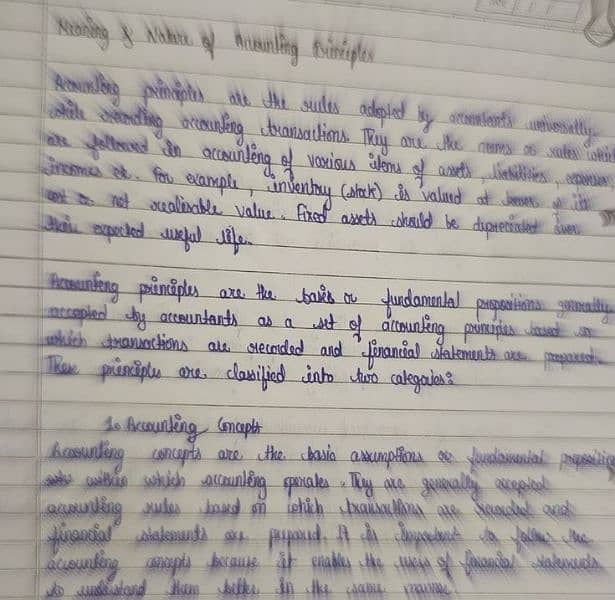 Meaning & Nature of Accounting Principles
Accounting principles are the rules adopted by accountants universally
while recording accounting transactions. They are the norms or rules which
are followed in accounting of various items of assets, liabilities, expenses
incomes etc. For example, inventory (stock) is valued at lower of its
cost or not realisable value. Fixed assets should be depreciated over
their expected useful life.
Accounting principles are the basis or fundamental propositions generally
accepted by accountants as a set of accounting principles based on
which transactions are recorded and financial statements are prepared.
These principles are classified into two categories:
1. Accounting Concepts
Accounting concepts are the basic assumptions or fundamental propositions
within which accounting operates. They are generally accepted
accounting rules based on which transactions are recorded and
financial statements are prepared. It is important to follow the
accounting concepts because it enables the users of financial statements
to understand them better in the same manner.